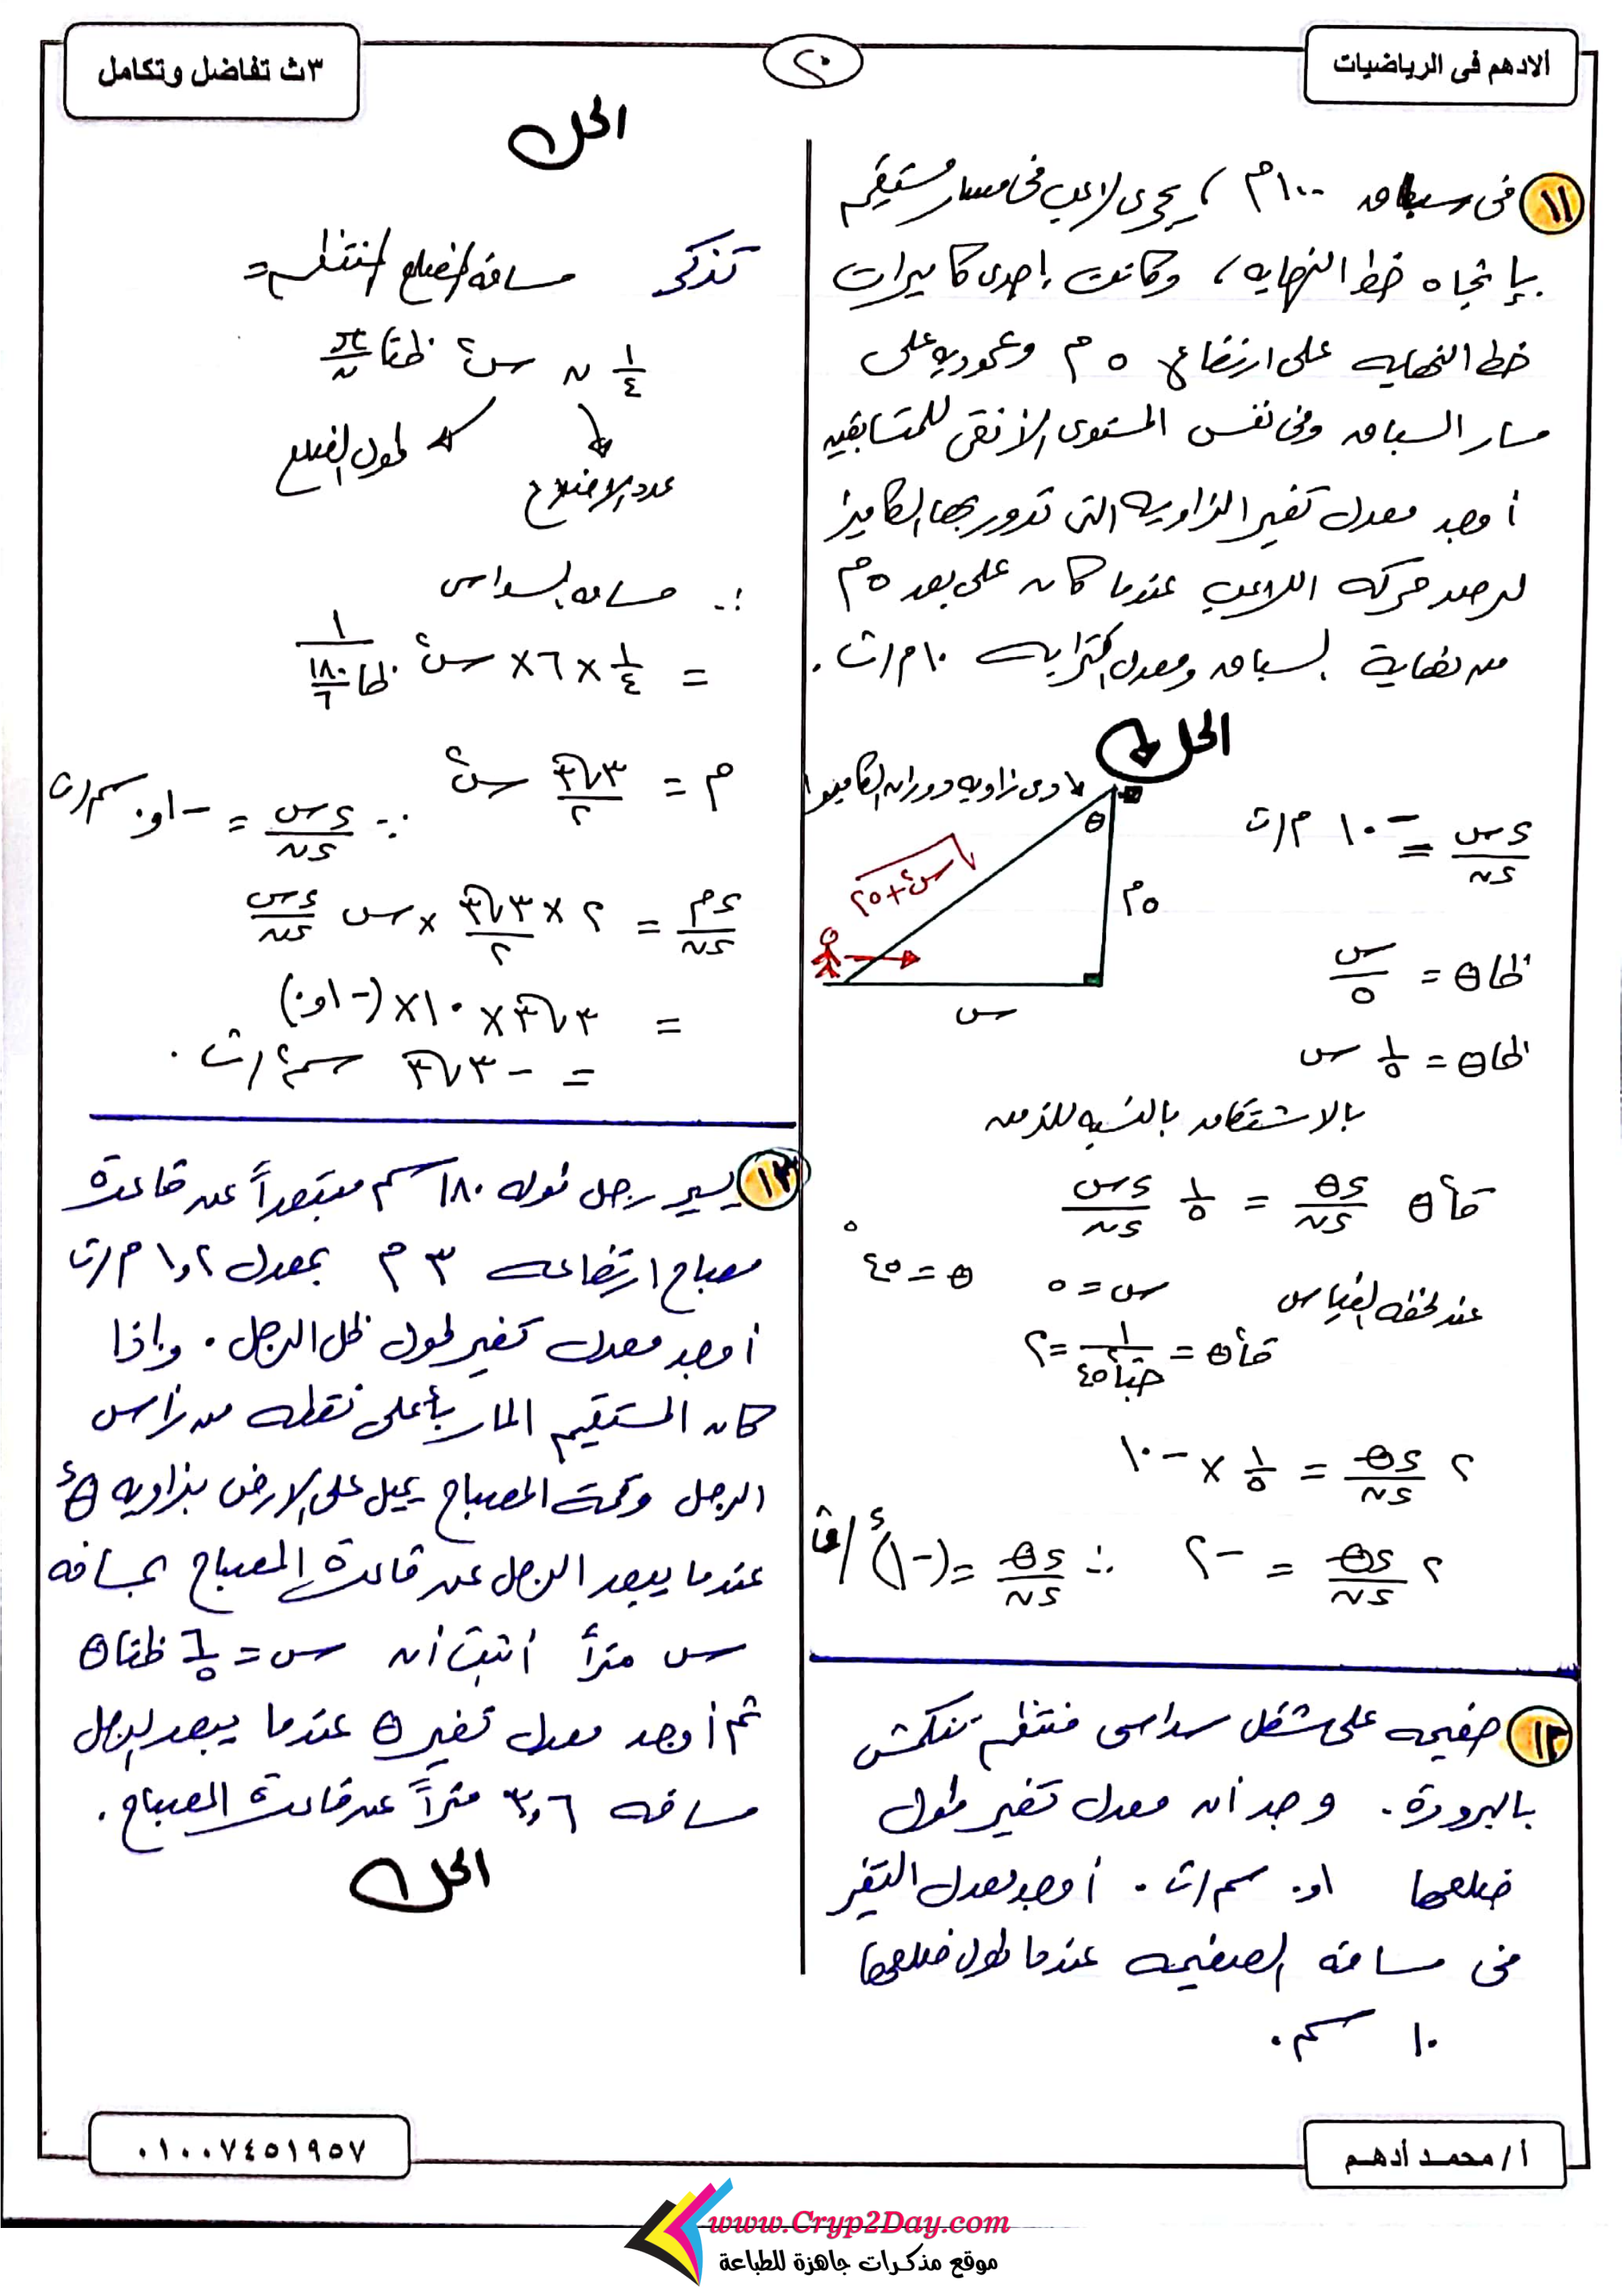 الادهم فى الرياضيات
٢٠
٣ث تفاضل وتكامل
١١ فى سباق ١٠٠م ، يجرى لاعب فى مسار مستقيم
بإتجاه خط النهايه ، وكانت إحدى كاميرات
خط النهايه على ارتفاع ٥ م وعموديه على
مسار السباق وفى نفس المستوى الافقى للمتسابقين
أوجد معدل تغير الزاويه التى تدور بها الكاميرا
لرصد حركه اللاعب عندما كان على بعد ٥م
من نهاية السباق ومعدل اقترابه ١٠ م/ث .
الحل
θ هى زاويه دوران الكاميرا
ءس/ءن = -١٠ م/ث
θ
√(س² + ٢٥)
٥م
س
ظا θ = س/٥
ظا θ = ١/٥ س
بالاشتقاق بالنسبه للزمن
قا² θ ءθ/ءن = ١/٥ ءس/ءن
عند لحظه القياس س = ٥ θ = ٤٥°
قا² θ = ١/جتا² ٤٥ = ٢
٢ ءθ/ءن = ١/٥ × -١٠
٢ ءθ/ءن = -٢ ∴ ءθ/ءن = (-١)ء /ث
١٢ صفيحه على شكل سداسى منتظم تنكمش
بالبرودة . وجد أن معدل تغير طول
ضلعها ٠,١ سم/ث . أوجد معدل التغير
فى مساحه الصفيحه عندما طول ضلعها
١٠ سم .
الحل
تذكر مساحه المضلع المنتظم =
١/٤ ن س² ظتا π/ن
عدد الاضلاع
طول الضلع
∴ مساحه السداسى
= ١/٤ × ٦ × س² ١/ظا ١٨٠/٦
م = ٣√٣/٢ س² ∵ ءس/ءن = -٠,١ سم/ث
ءم/ءن = ٢ × ٣√٣/٢ × س ءس/ءن
= ٣√٣ × ١٠ × (-٠,١)
= -٣√٣ سم²/ث .
١٣ يسير رجل طوله ١٨٠ سم مبتعداً عن قاعدة
مصباح ارتفاعه ٣ م بمعدل ١,٢ م/ث
أوجد معدل تغير طول ظل الرجل . واذا
كان المستقيم المار بأعلى نقطه من رأس
الرجل وقمة المصباح يميل على الارض بزاويه θء
عندما يبعد الرجل عن قاعدة المصباح بمسافه
س متراً أثبت أن س = ٦/٥ ظتا θ
ثم أوجد معدل تغير θ عندما يبعد الرجل
مسافه ٣,٦ متراً عن قاعدة المصباح .
الحل
أ / محمد أدهم
٠١٠٠٧٤٥١٩٥٧
www.Cryp2Day.com
موقع مذكرات جاهزة للطباعة